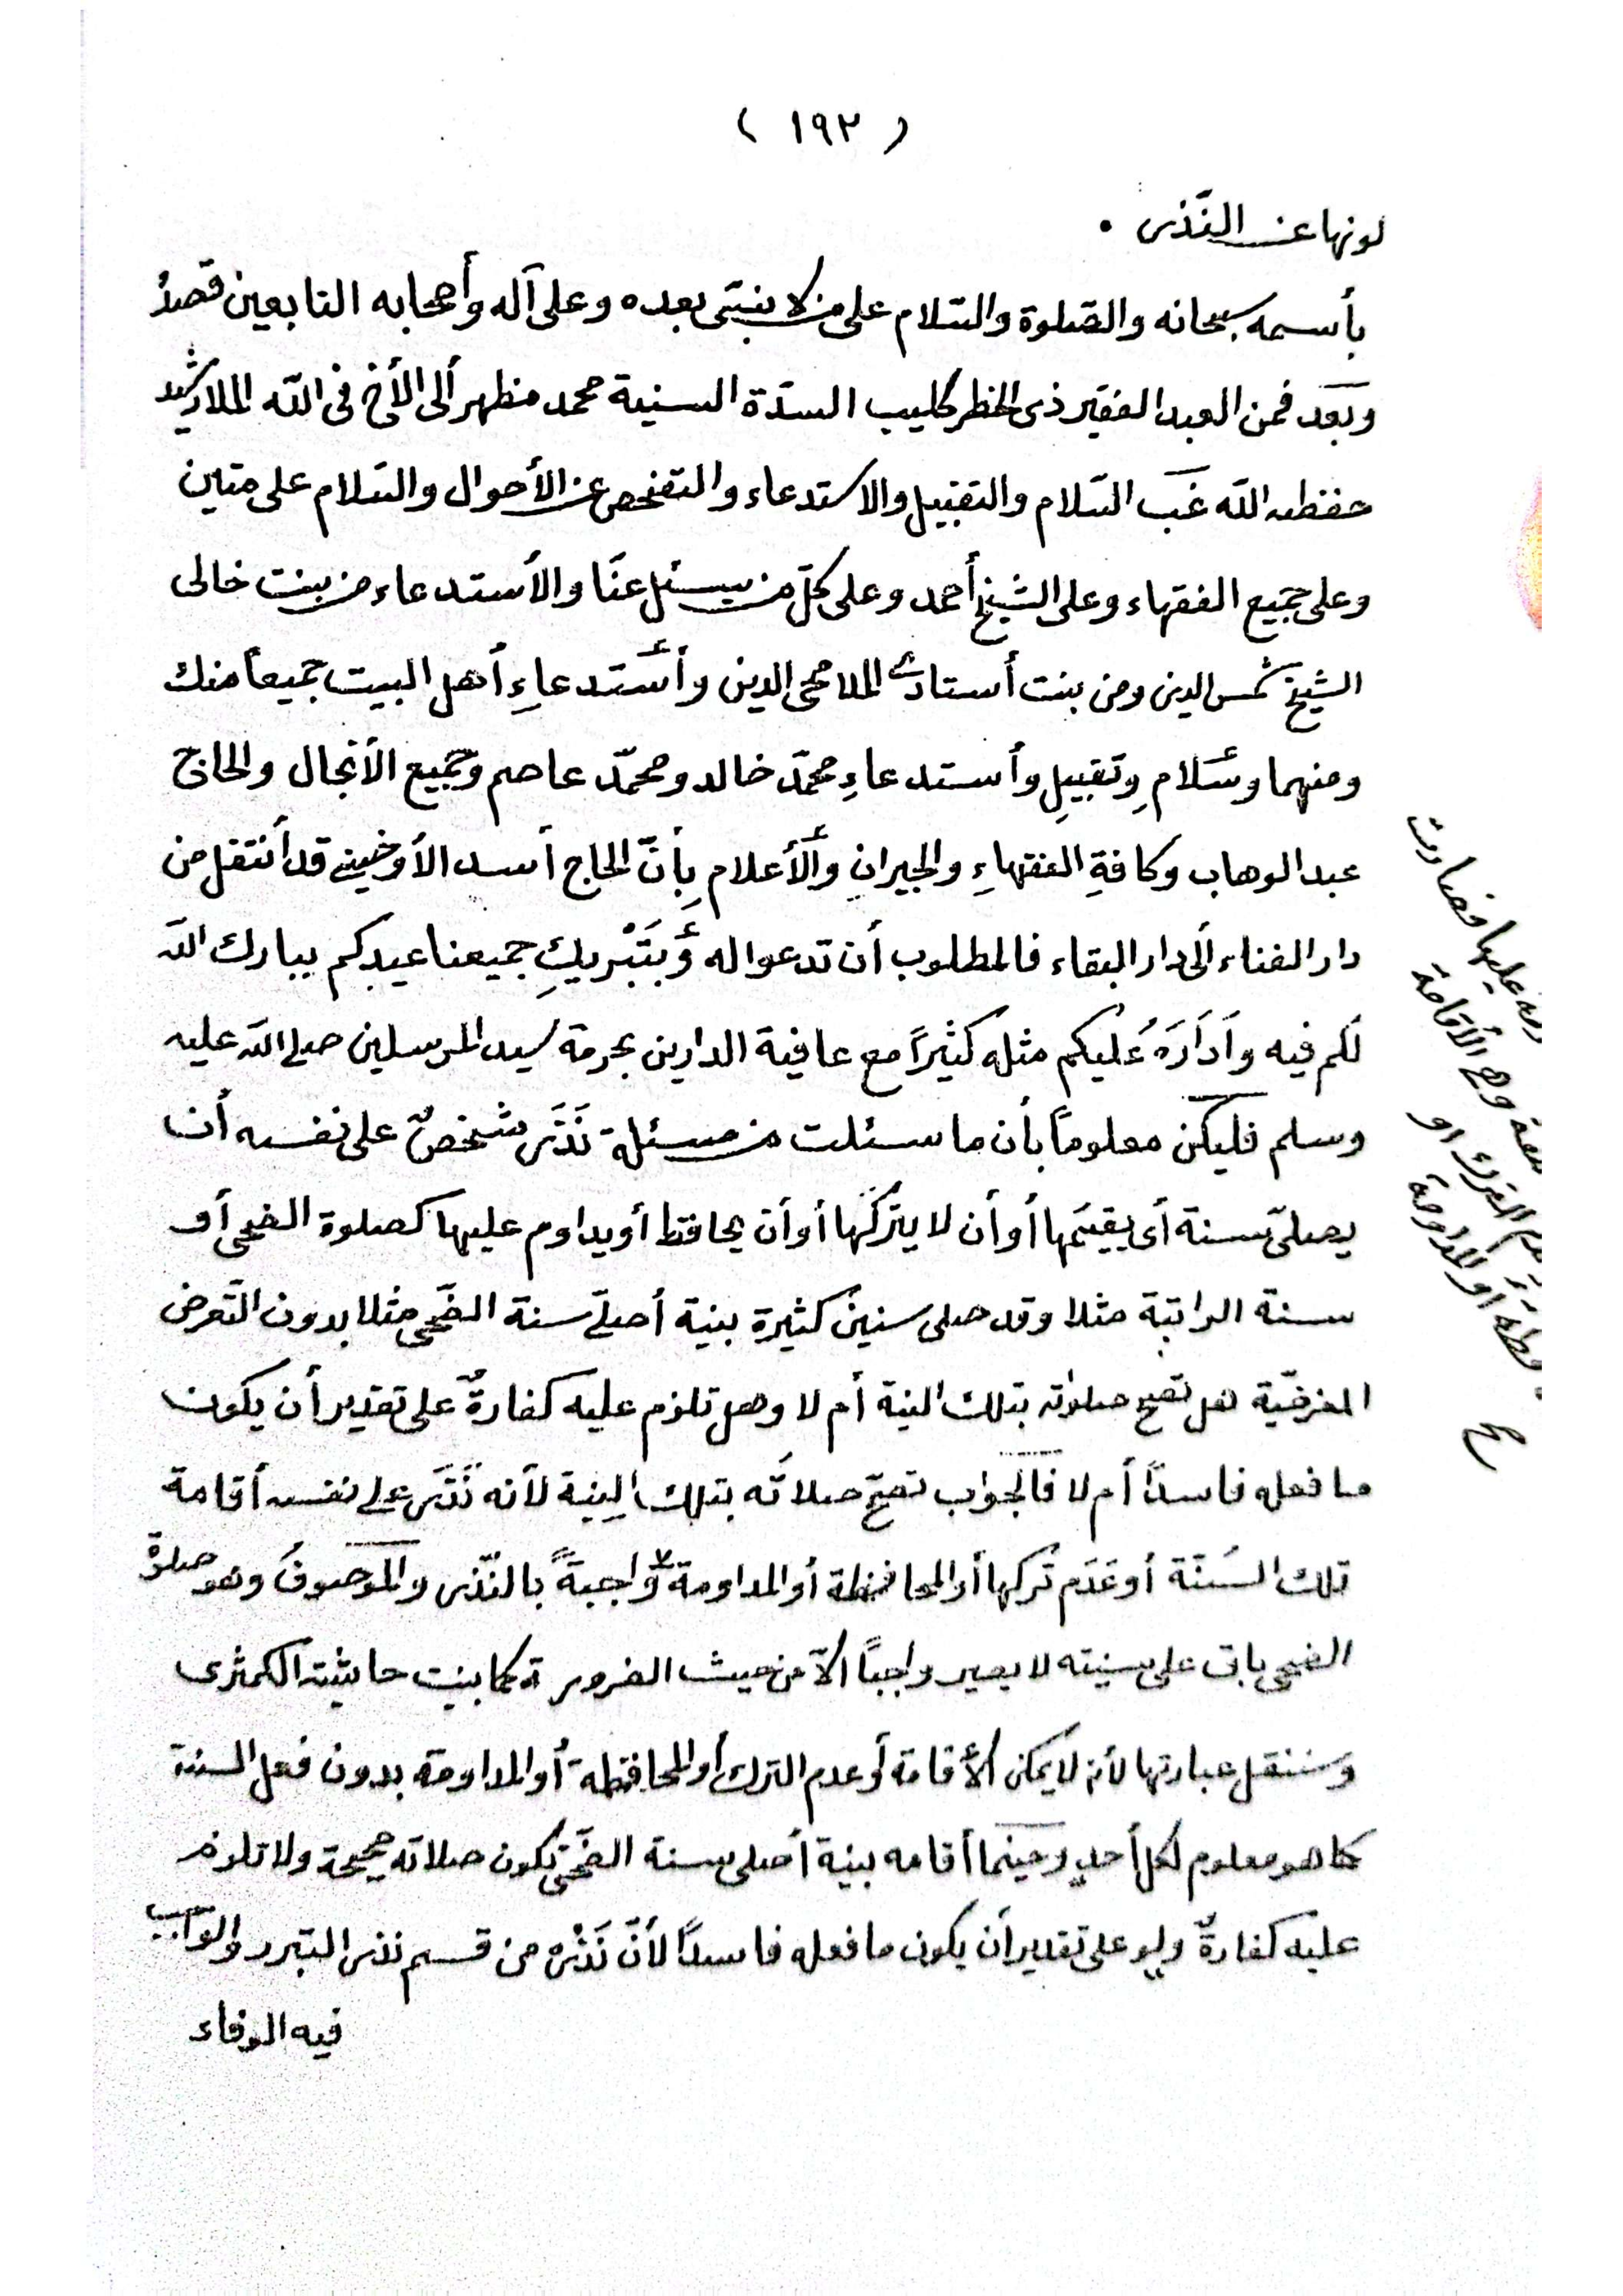 ( ١٩٢ )
لونها عن النّذر .
بأسمه سبحانه والصّلوة والسّلام على من لا نبيّ بعده وعلى آله وأصحابه التابعين قصدُ
وبَعد فمن العبد الفقير ذى الخطر كليب السدّة السنية محمد مظهر ألى الأخ فى اللّه الملا رشيد
حفظه اللّه غَب السّلام والتقبيل والاستدعاء والتفحص عن الأحوال والسّلام على متين
وعلى جميع الفقهاء وعلى الشيخ أحمد وعلى كلّ من يسئل عنّا والأستدعاء من بنت خالى
الشيخ شمس الدين ومن بنت أستادى الملا محى الدين وأستدعاءِ أهل البيت جميعاً منك
ومنهما وسَلامِ وتقبيلِ وأستدعاءِ محمّد خالد ومحمّد عاصم وجميع الأنجال والحاج
عبد الوهاب وكافةِ الفقهاءِ والجيرانِ والأعلامِ بِأنّ الحاج أسد الأوخينى قد أنتقل من
دار الفناء ألى دار البقاء فالمطلوب أن تدعوا له وَبتَبْريكِ جميعنا عيدكم يبارك اللّه
لكم فيه وأدَارَهُ عَليكم مثله كثيراً مع عافية الدارين بحرمة سيد المرسلين صلى اللّه عليه
وسلم فليكن معلوماً بأن ما سئلت من مسئلة نَذَر شخصٌ على نفسه أن
يصلىّ سنة أى يقيمَها أو أن لا يتركَها أو أن يحافظ أو يداوم عليها كصلوة الضحى أو
سنة الراتبة مثلا وقد صلى سنينَ كثيرة بنية أصلّى سنة الضّحى مثلا بدون التّعرض
الفرضيّة هل تصح صلوته بتلك النية أم لا وهل تلزم عليه كفارةٌ على تقدير أن يكون
ما فعله فاسداً أم لا فالجواب تصحّ صلاته بتلك النِية لأنه نَذَر على نفسه أقامة
تلك السُنّة أو عَدَم تركها أو المحافظة أو المداومة واجبةً بالنّذر والموصوفُ وهو صلوة
الضحى باق على سنيته لا يصير واجبًا الاّ من حيث الضرورة كما بينت حاشية الكمثرى
وسننقل عبارتها لأنه لا يمكن الأقامة أو عدم الترك أو المحافظة أو المداومة بدون فعل السنة
كما هو معلوم لكل أحدٍ وحينما أقامه بنية أصلى سنة الضّحى تكون صلاته صحيحة ولا تلزم
عليه كفارةٌ ولو على تقدير أن يكون ما فعله فاسداً لأنّ نَذْره من قسم نذر التبرر والواجب
فيه الوفاء
عليها فصارت
وهى الأقامة
الترك أو
أو المداومة